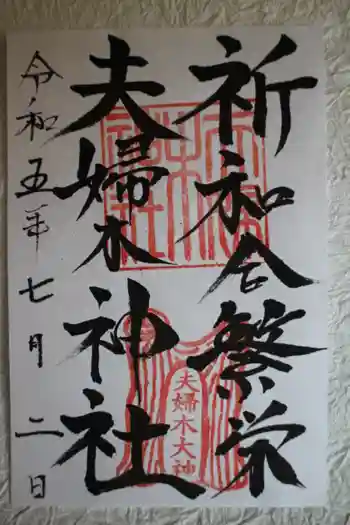 祈和合繁栄
夫婦木神社
夫婦木大神
令和五年七月二日